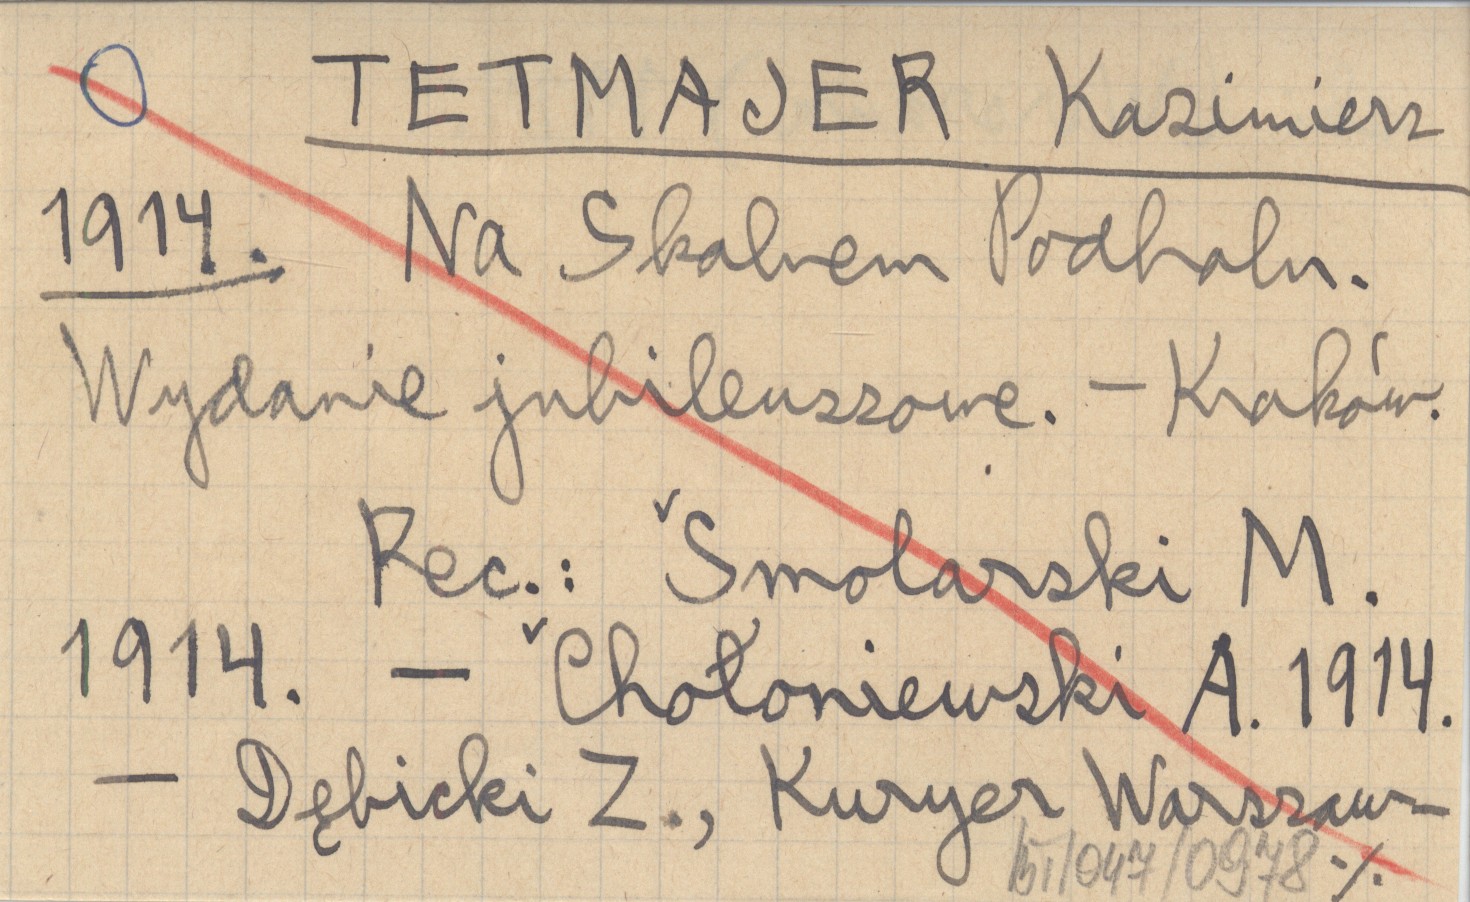 TETMAJER Kazimierz
1914. Na Skalnem Podhalu.
Wydanie jubileuszowe. – Kraków.
Rec.: Smolarski M.
1914. – Chołoniewski A. 1914.
– Dębicki Z., Kuryer Warszaw-
/047/0978 ./.